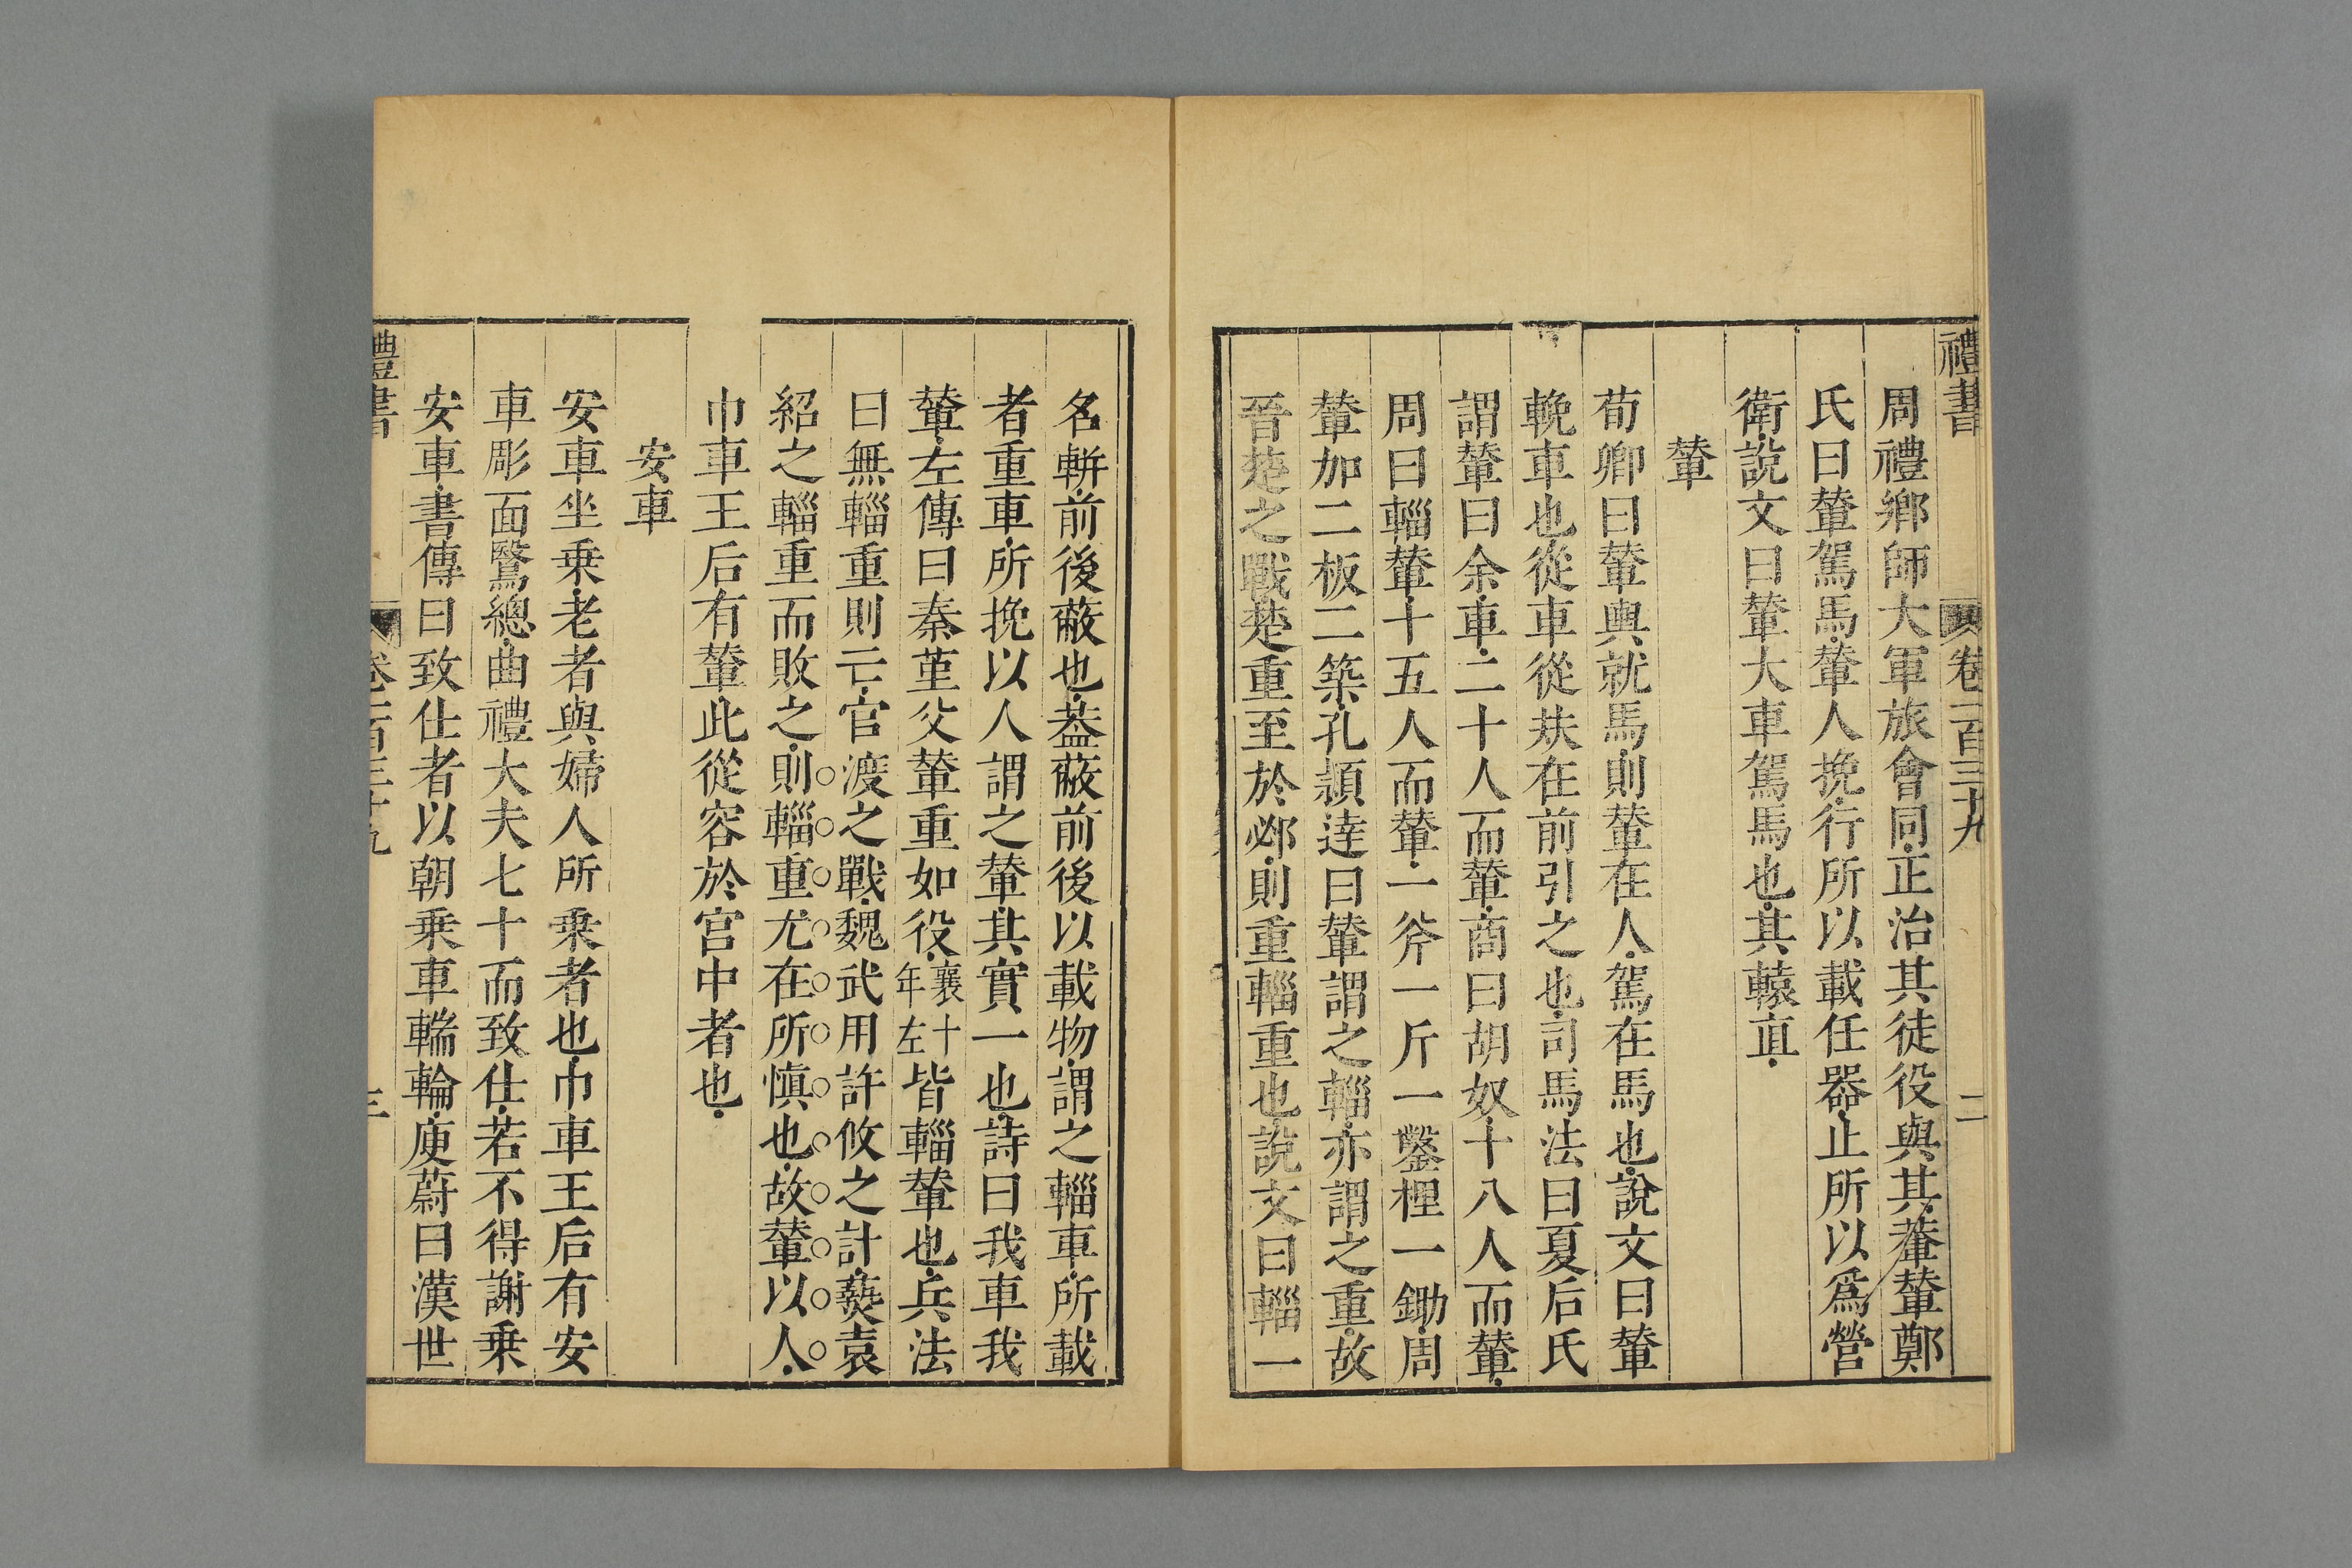 禮書 卷一百三十九 二
周禮鄉師大軍旅會同正治其徒役與其輂輦鄭
氏曰輦駕馬輦人挽行所以載任器止所以爲營
衛說文曰輂大車駕馬也其轅直
輦
荀卿曰輦輿就馬則輦在人駕在馬也說文曰輦
輓車也從車從㚘在前引之也司馬法曰夏后氏
謂輦曰余車二十人而輦商曰胡奴十八人而輦
周曰輜輦十五人而輦一斧一斤一鑿梩一鋤周
輦加二板二築孔頴逹曰輦謂之輜亦謂之重故
晉楚之戰楚重至於邲則重輜重也說文曰輜一
名軿前後蔽也葢蔽前後以載物謂之輜車所載
者重車所挽以人謂之輦其實一也詩曰我車我
輦左傳曰秦堇父輦重如役襄十年左皆輜輦也兵法
曰無輜重則亡官渡之戰魏武用許攸之計爇袁
紹之輜重而敗之則輜重尤在所愼也故輦以人
巾車王后有輦此從容於宫中者也
安車
安車坐乘老者與婦人所乘者也巾車王后有安
車彫面鷖總曲禮大夫七十而致仕若不得謝乘
安車書傳曰致仕者以朝乘車輲輪庾蔚曰漢世
禮書 卷一百三十九 三